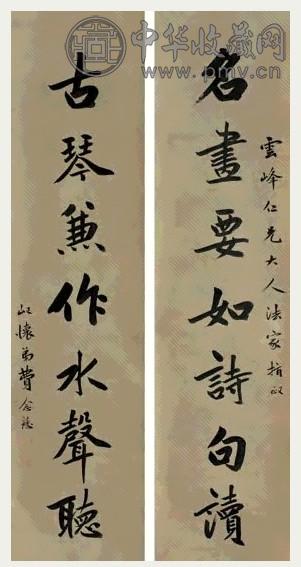 中华收藏网
www.pmv.cn
雲峰仁兄大人法家指政
名畫要如詩句讀
古琴兼作水聲聽
屺懷弟費念慈